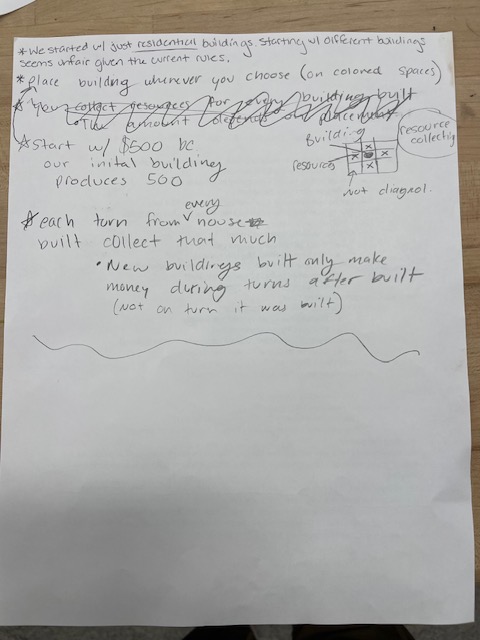 * We started w/ just residential buildings. Starting w/ different buildings
seems unfair given the current rules.
* Place building wherever you choose (on colored spaces)
* You collect resources for every building built
amount depends on placement
Building
resource
collecting
resources
x
x x
x
not diagnol.
* Start w/ $500 bc
our inital building
produces 500
* each turn from every house
built collect that much
• New buildings built only make
money during turns after built
(not on turn it was built)